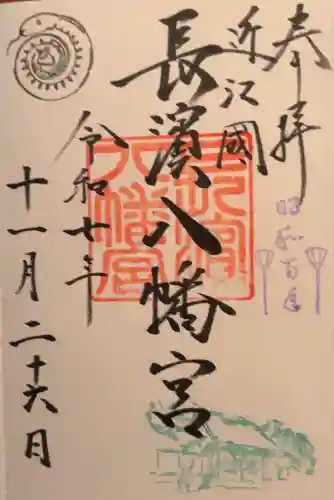 奉拝
近江國
長濱八幡宮
令和七年
十一月二十六日
昭和百年
長濱八幡宮